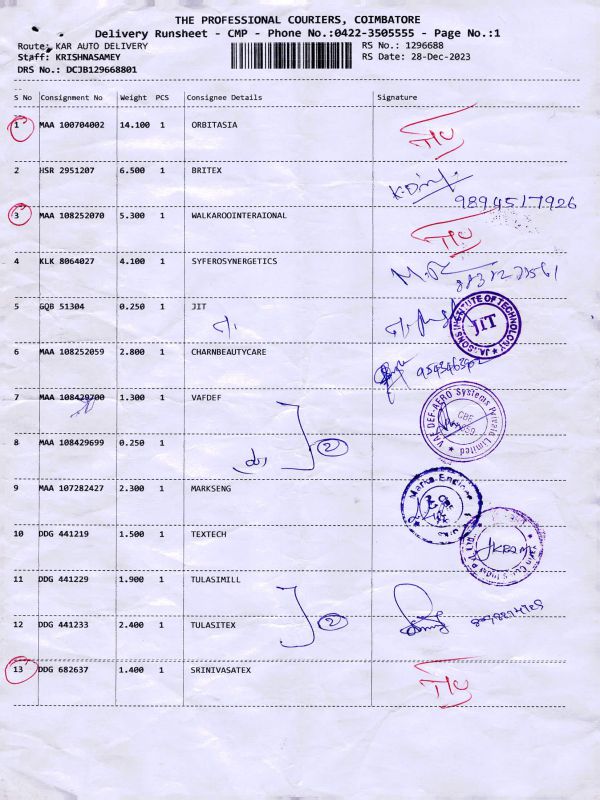 THE PROFESSIONAL COURIERS, COIMBATORE
Delivery Runsheet - CMP - Phone No.:0422-3505555 - Page No.:1
Route: KAR AUTO DELIVERY RS No.: 1296688
Staff: KRISHNASAMEY RS Date: 28-Dec-2023
DRS No.: DCJB129668801
S No Consignment No Weight PCS Consignee Details Signature
1 MAA 100704002 14.100 1 ORBITASIA
2 HSR 2951207 6.500 1 BRITEX
9894517926
3 MAA 108252070 5.300 1 WALKAROOINTERAIONAL
4 KLK 8064027 4.100 1 SYFEROSYNERGETICS
5 GQB 51304 0.250 1 JIT
JANSONS INSTITUTE OF TECHNOLOGY
JIT
6 MAA 108252059 2.800 1 CHARNBEAUTYCARE
7 MAA 108429700 1.300 1 VAFDEF
VAE DEF-AERO Systems Private Limited
CBE
2
8 MAA 108429699 0.250 1
9 MAA 107282427 2.300 1 MARKSENG
10 DDG 441219 1.500 1 TEXTECH
11 DDG 441229 1.900 1 TULASIMILL
12 DDG 441233 2.400 1 TULASITEX
2
13 DDG 682637 1.400 1 SRINIVASATEX